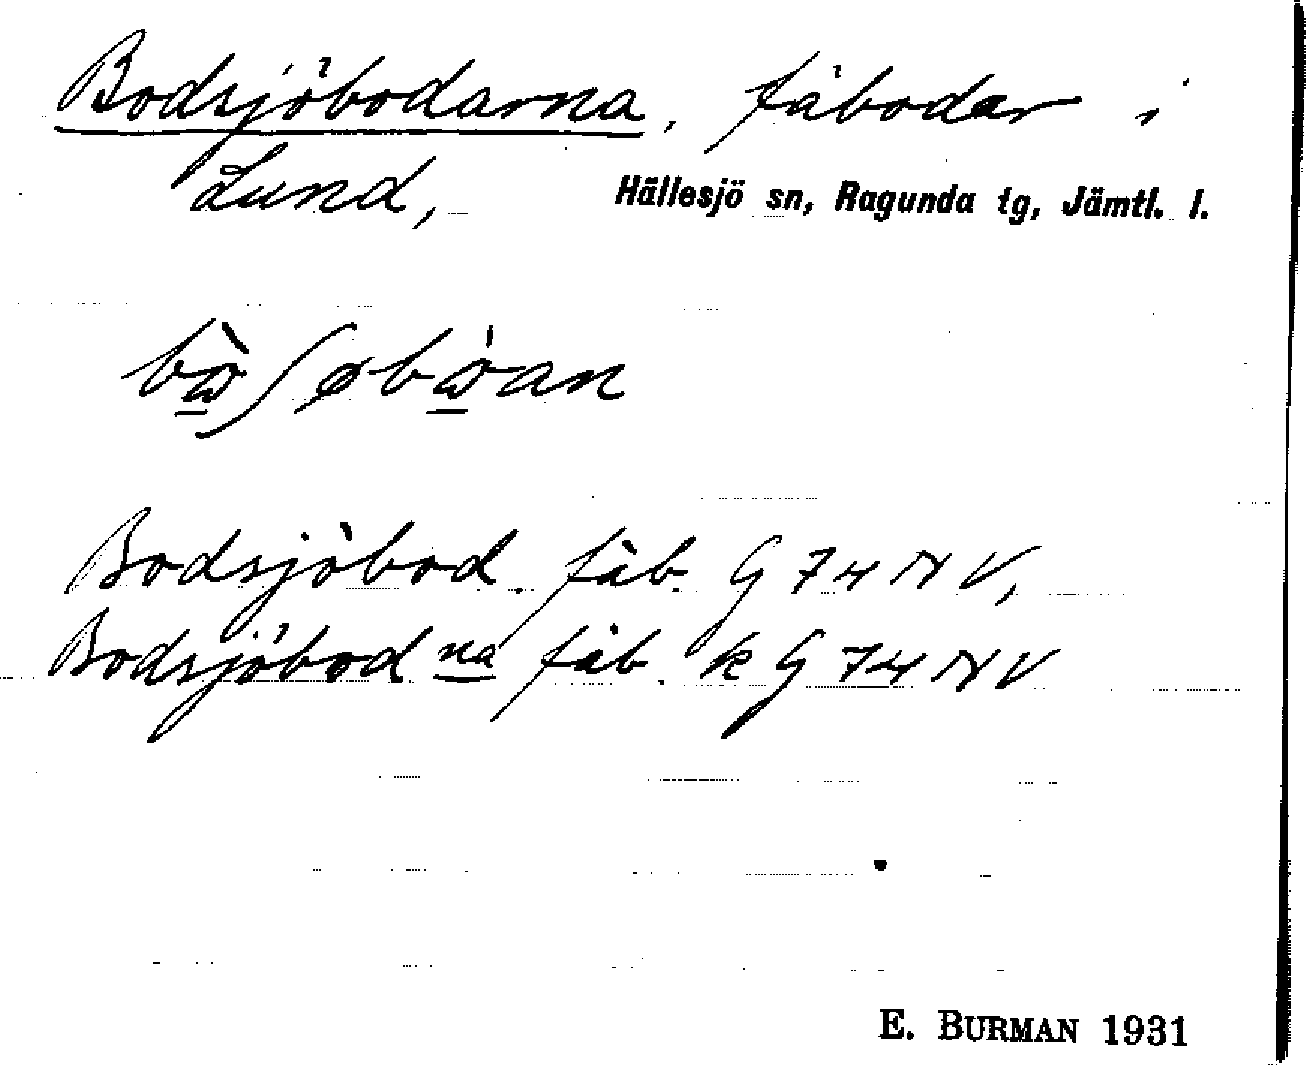 Bodsjöbodarna, fäbodar i
Lund, Hällesjö sn, Ragunda tg, Jämtl. l.
Bodsjöbod fäb. G 74 NV,
Bodsjöbodna fäb. k G 74 NV
E. BURMAN 1931